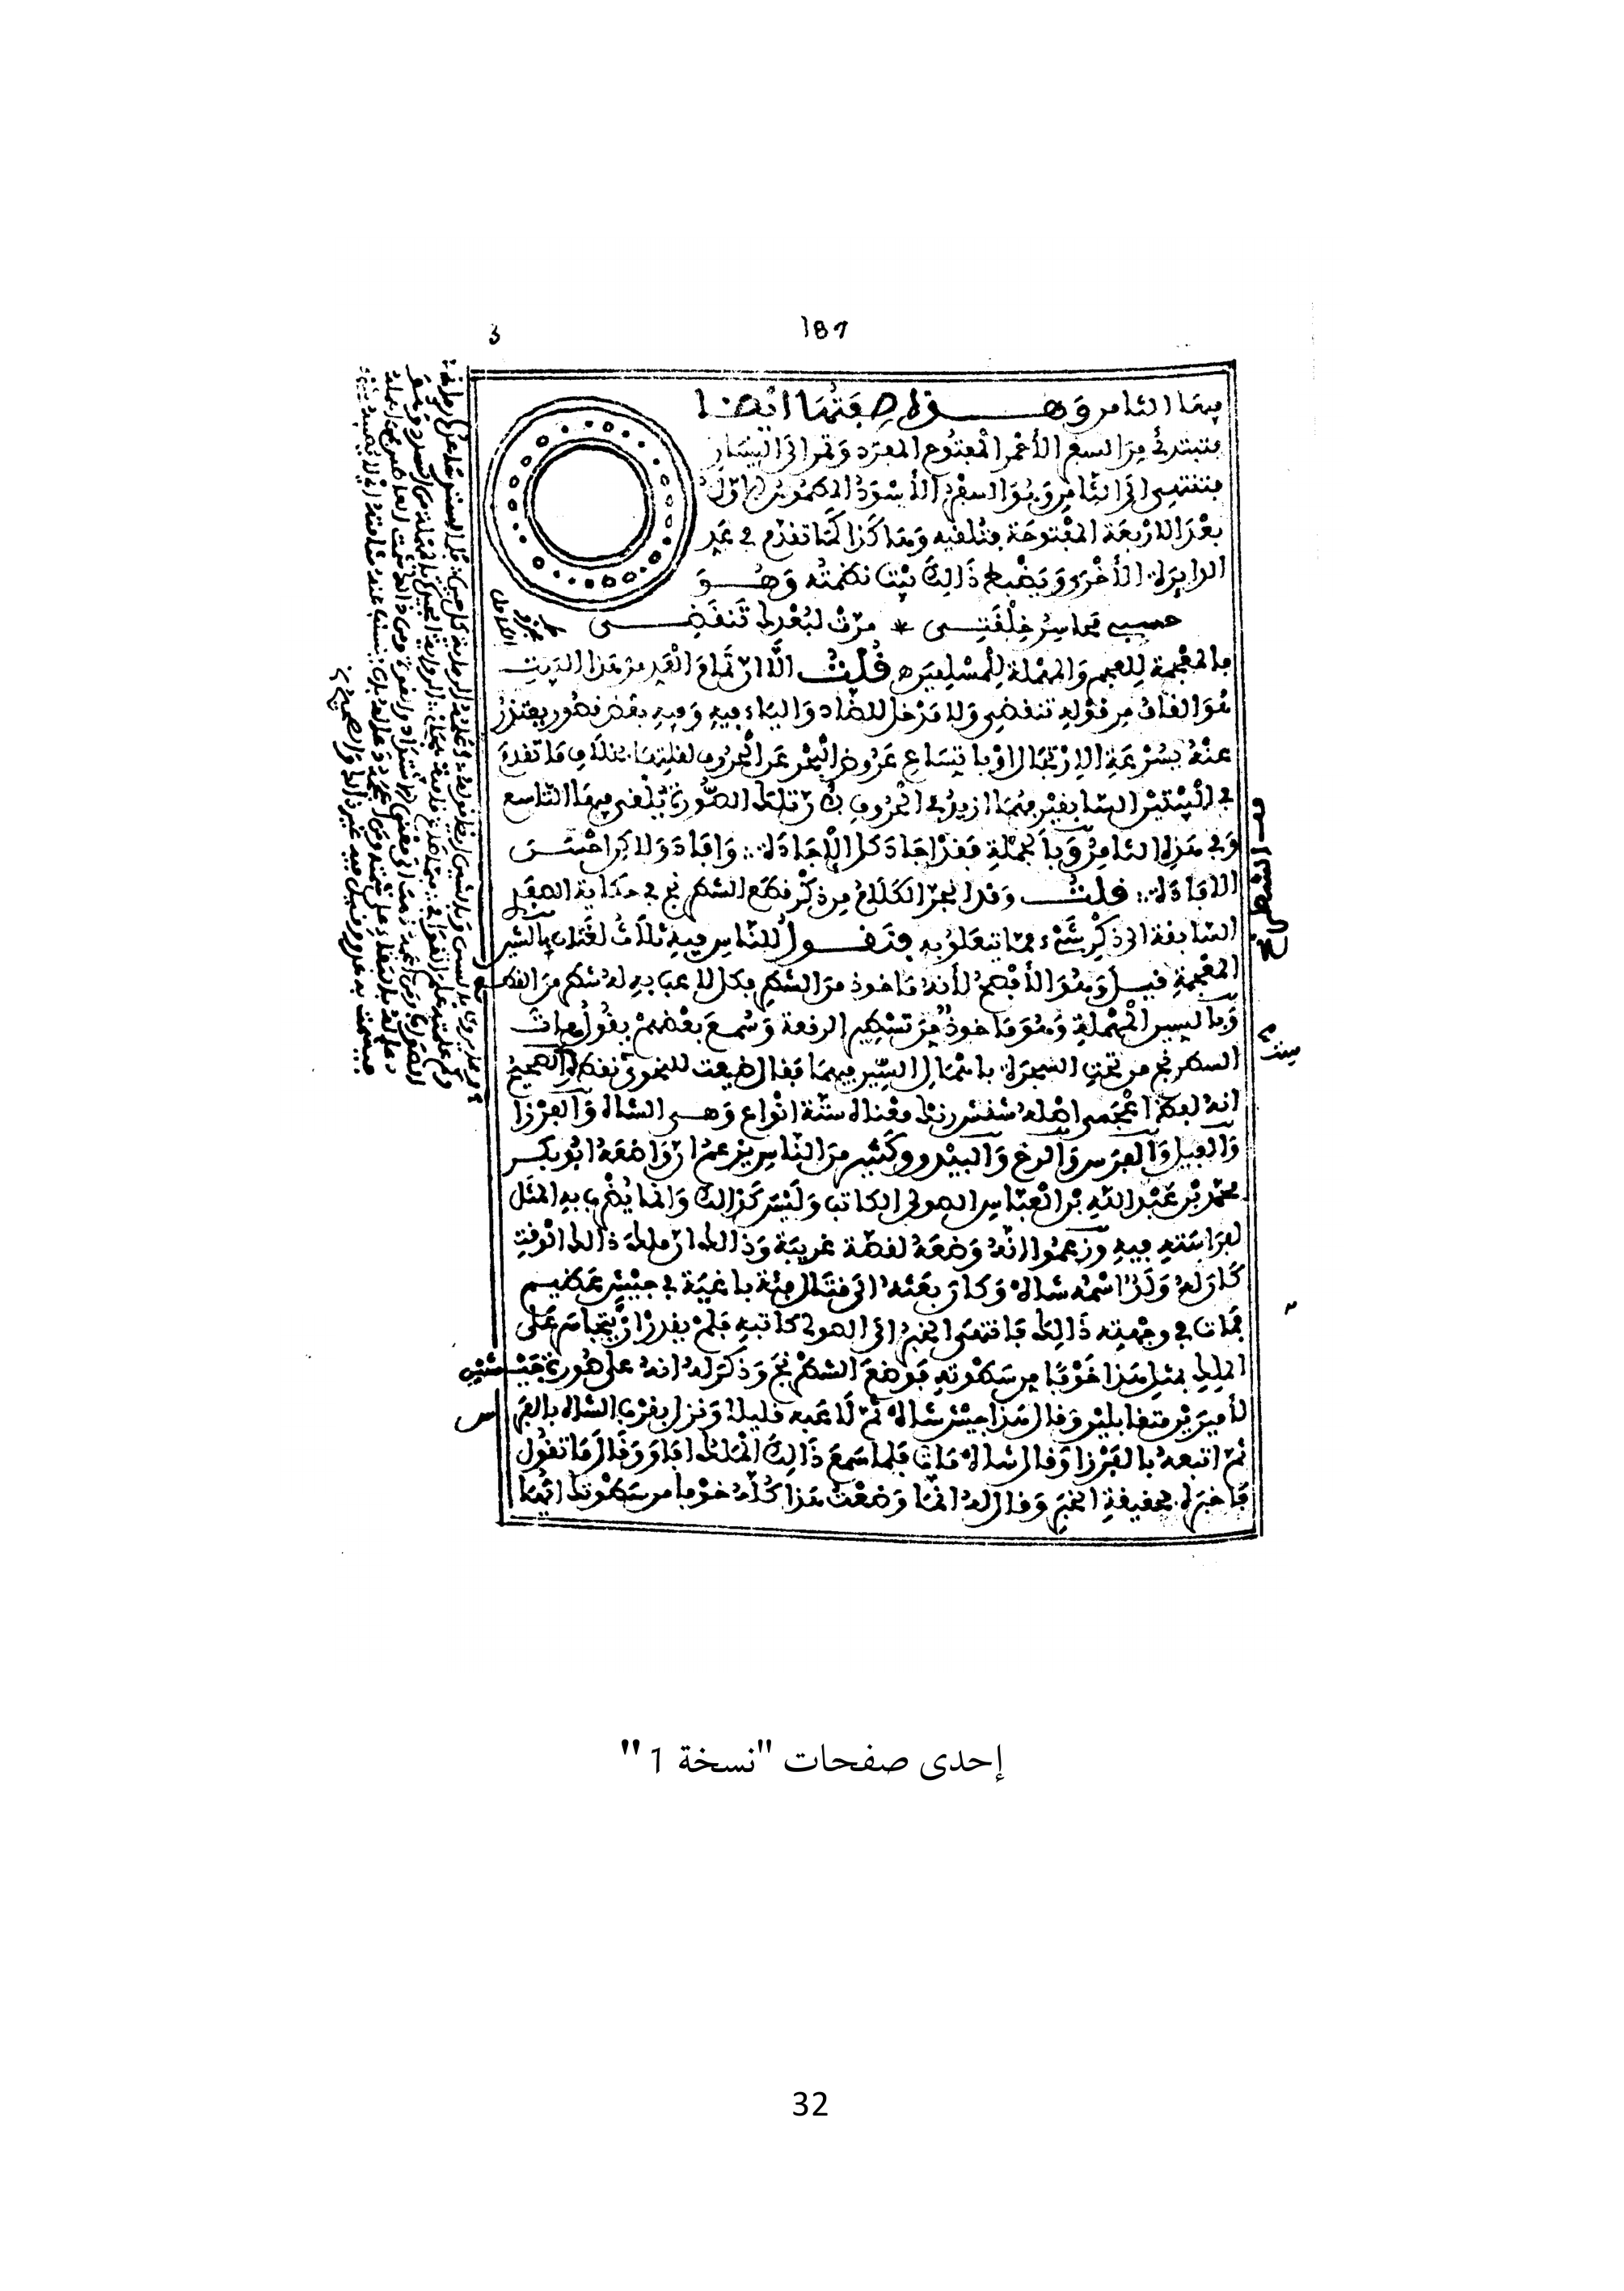 187
3
فيها الثامن وهذه صفتها أيضا
فتبتدئ من السقع الأحمر المفتوح المفرد وتمر إلى اليسار
فتنتهي إلى الثامن وهو السقع الأسود المطموس الأول
بعد الأربعة المفتوحة فتلقيه وهاكذا كما تقدم في غير
الدايرة الأخرى ويضبط ذالك بيت نظمته وهو
حسبي محاسن خلقتي * مرت لبعدك تنقضي
فالمعجمة للعجم والمهملة للمسلمين قلت الا ان تمام القدر من هذا البيت
هو القاف من قوله تنقضي ولا مدخل للضاد والياء فيه وفيه بعض قصور يعتذر
عنه بسرعة الارتجال او باتساع عروض البحر عن الحروف لقلتها بخلاف ما تقدم
في البيتين السابقين فهما ازيد في الحروف لان تلك الصورة يلغى فيها التاسع
وفي هذه الثامن وبالجملة فقد اجاد كل الاجادة وافاد ولاكن احسن
الافادة قلت وقد انجر الكلام من ذكر قطع الشطرنج في حكاية الصقر
السابقة الى ذكر شيء مما تعلق به فنقول للناس فيه ثلاث لغات بالشين
المعجمة قيل وهو الأفصح لأنه ماخوذ من الشطر فكل لاعب به له شطر من القطع
وبالسين المهملة وهو ماخوذ من تسطير الرقعة وسمع بعضهم يقول مات
السطرنج من تحت السجرة باهمال السين فيهما فقال ضيعت للنحوي نقطه والصحيح
انه لفظ اعجمي اصله شش رنك معناه ستة انواع وهي الشاه والفرزان
والفيل والفرس والرخ والبيدق وكثير من الناس يزعم ان واضعه ابو بكر
محمد بن عبد الله بن العباس الصولي الكاتب وليس كذالك وانما يضرب به المثل
لفراسته فيه وزعموا انه وضعه لقصة غريبة وذالك ان ملك ذالك الوقت
كان له ولد اسمه شاه وكان بعثه الى قتال فئة باغية في جيش عظيم
فمات في وجهته ذالك فانتهى الخبر الى الصولي كاتبه فلم يقدر ان يتجاسر على
الملك بمثل هذا خوفا من سطوته فوضع الشطرنج وذكر له انه على صورة جيشين
لأميرين متقابلين وقال هذا جيش شاه ثم لاعبه قليلا ونزل بقرب الشاه بالفرس
ثم اتبعه بالفرزان وقال شاه مات فلما سمع ذالك الملك افاق وقال ما تقول
فاخبره بحقيقة الخبر وقال له انما وضعت هذا كله خوفا من سطوتك ايها
إحدى صفحات "نسخة 1"
32